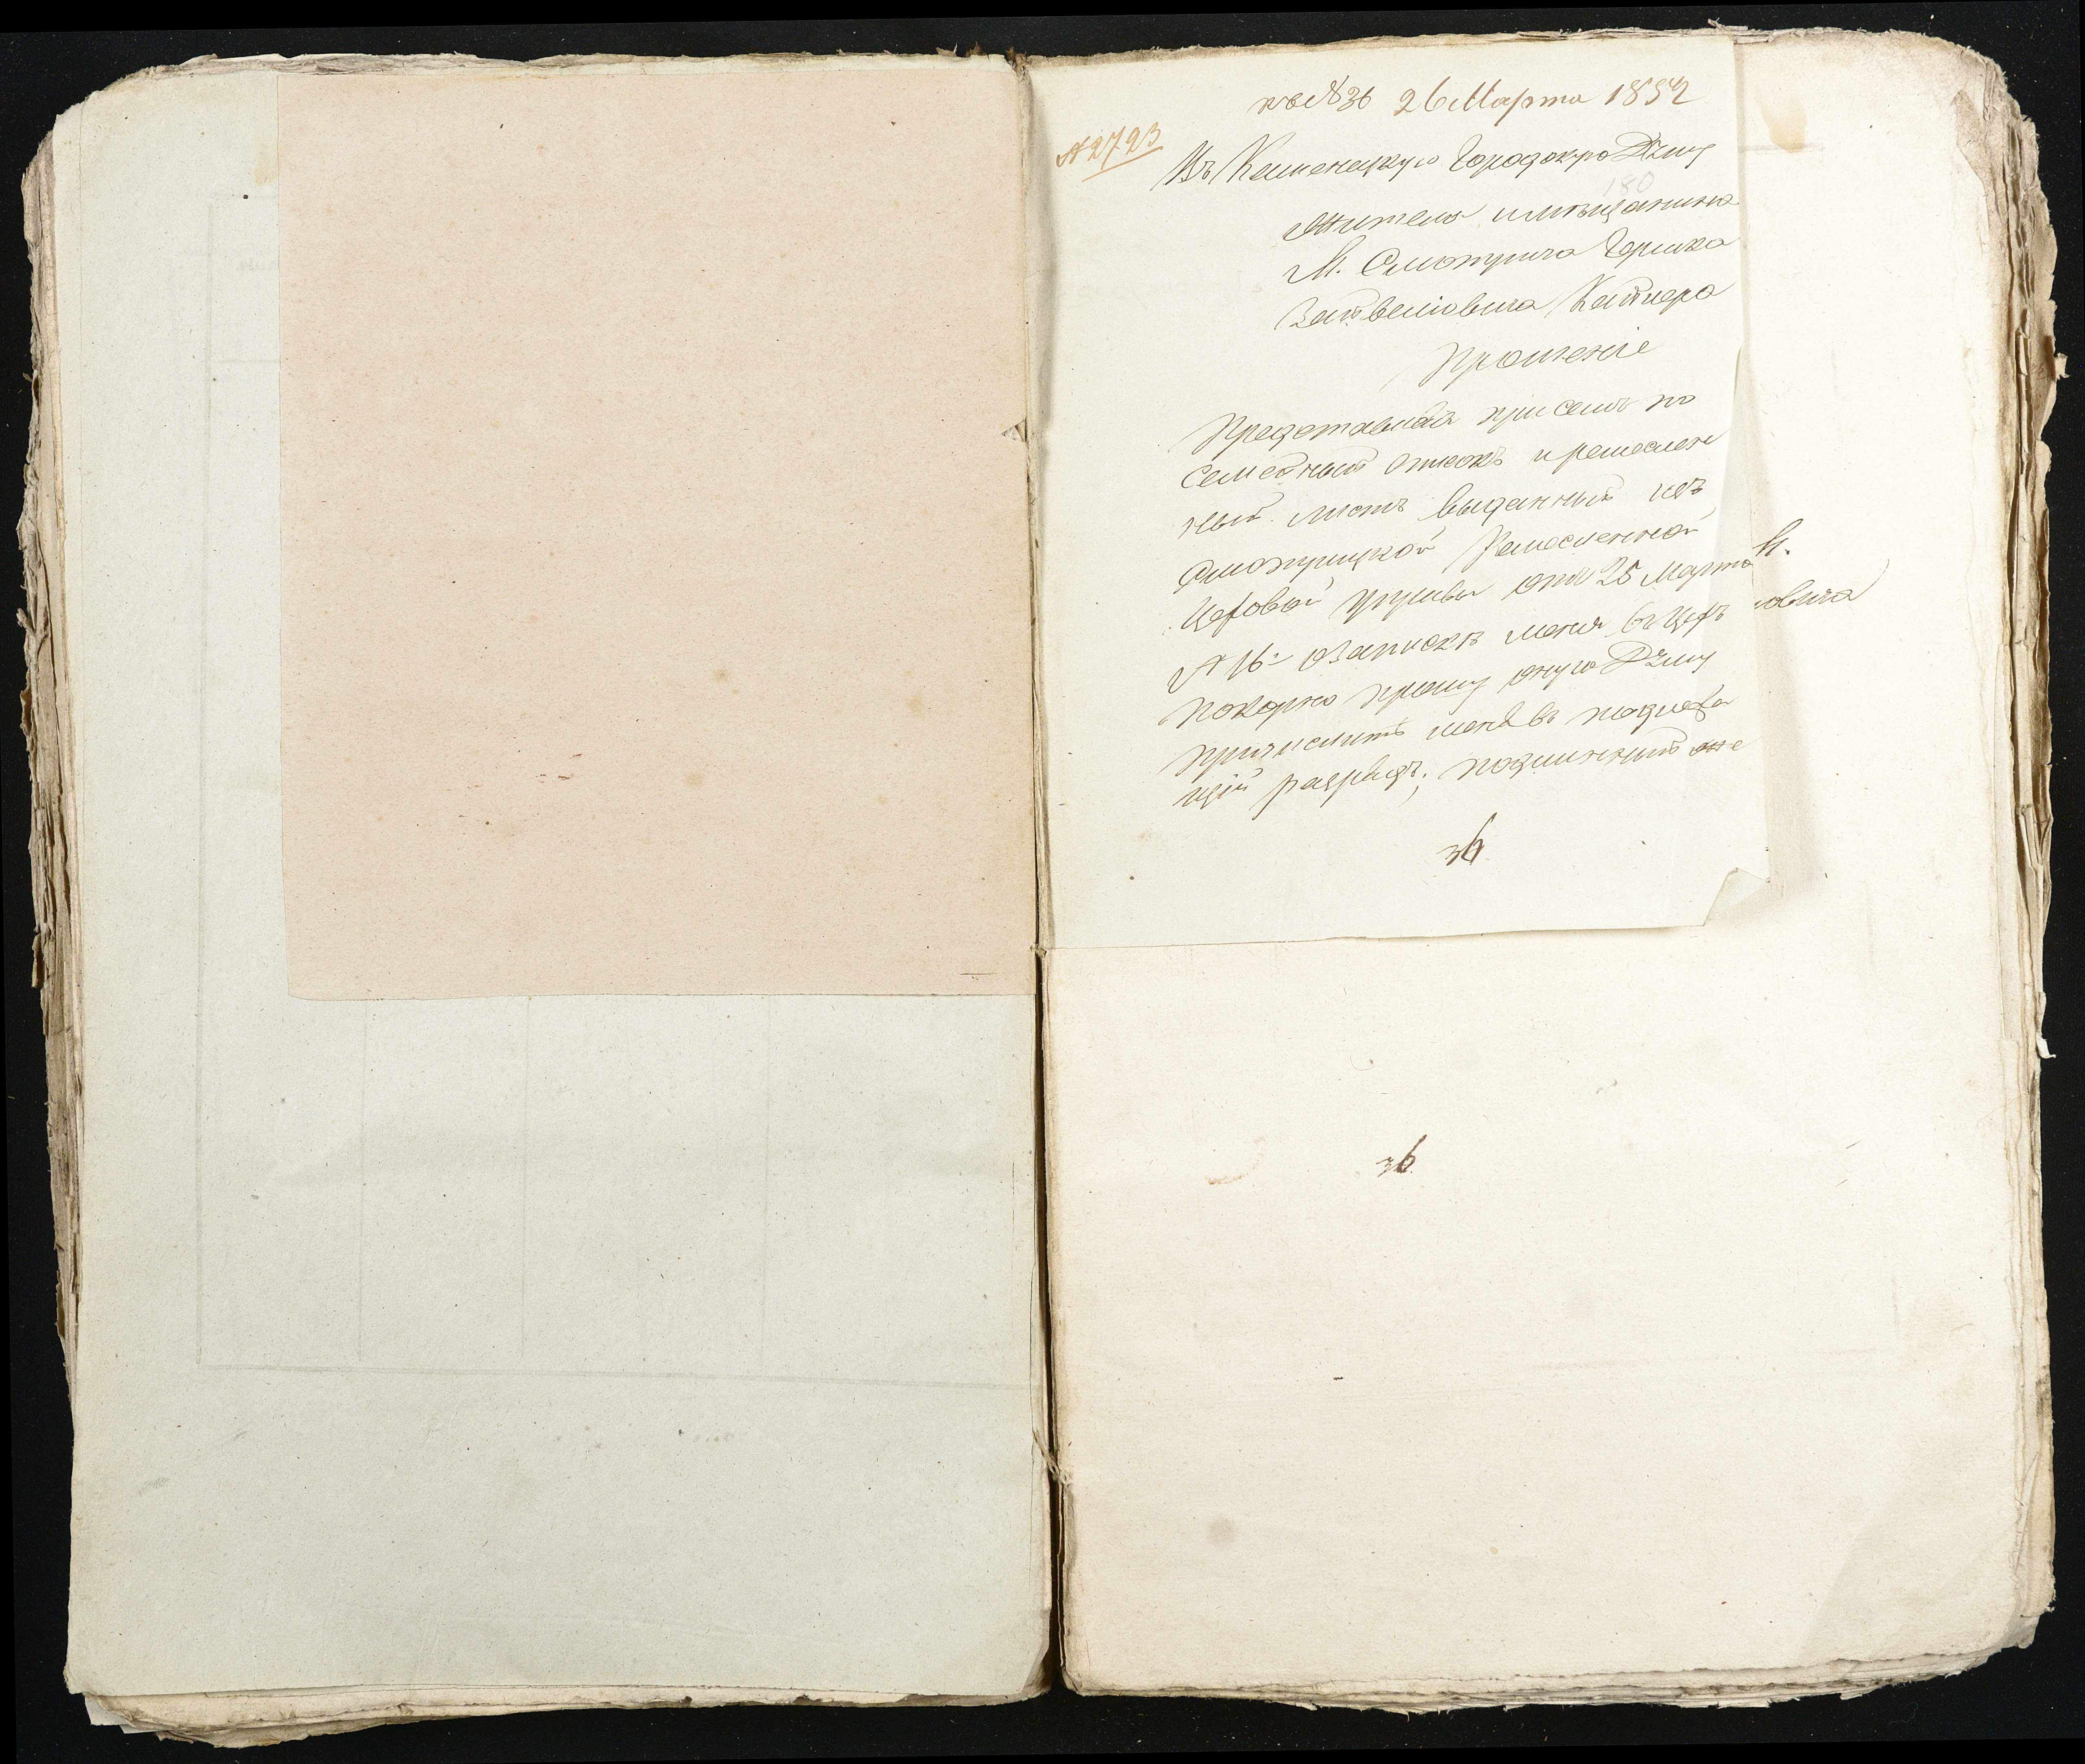 къ № 36 26 Марта 1852
№ 2723
Въ Каменецкую Городскую Думу
180
Жителя и мещанина
М. Смотрича Гершка
Зайвеліовича Кейтнера
Прошеніе
Представляя при семъ по
семейный списокъ и ремеслен
ный листъ выданный изъ
Смотрицкой Ремесленной
Цеховой Управы отъ 25 Марта
№ 16 о записке меня въ цехъ
покорно прошу оную Думу
причислить меня въ подлежа
щій разрядъ; подлинный же
овича
36
36